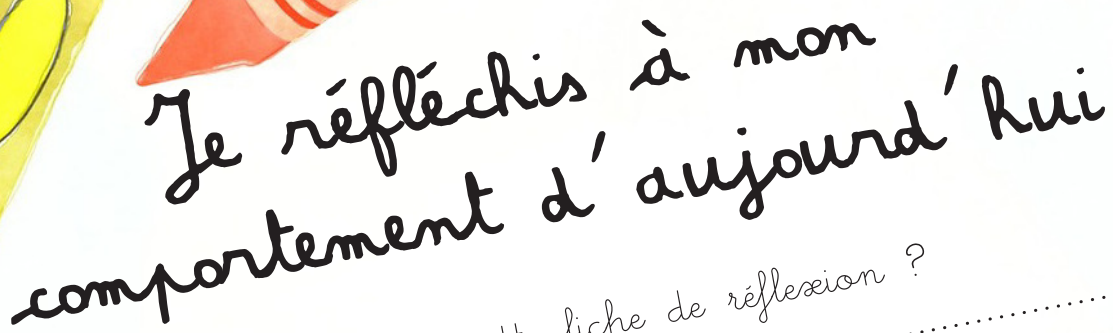 Je réfléchis à mon
comportement d'aujourd'hui
fiche de réflexion ?